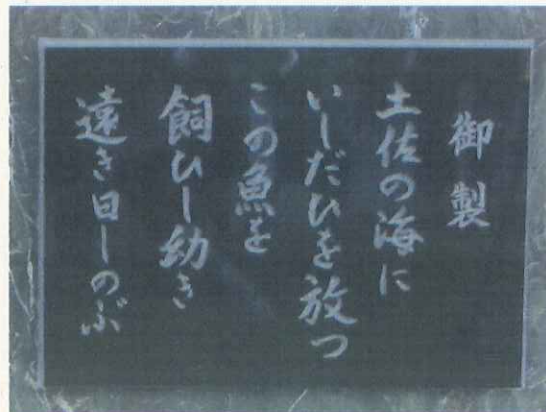 御製
土佐の海に
いしだひを放つ
この魚を
飼ひし幼き
遠き日しのぶ